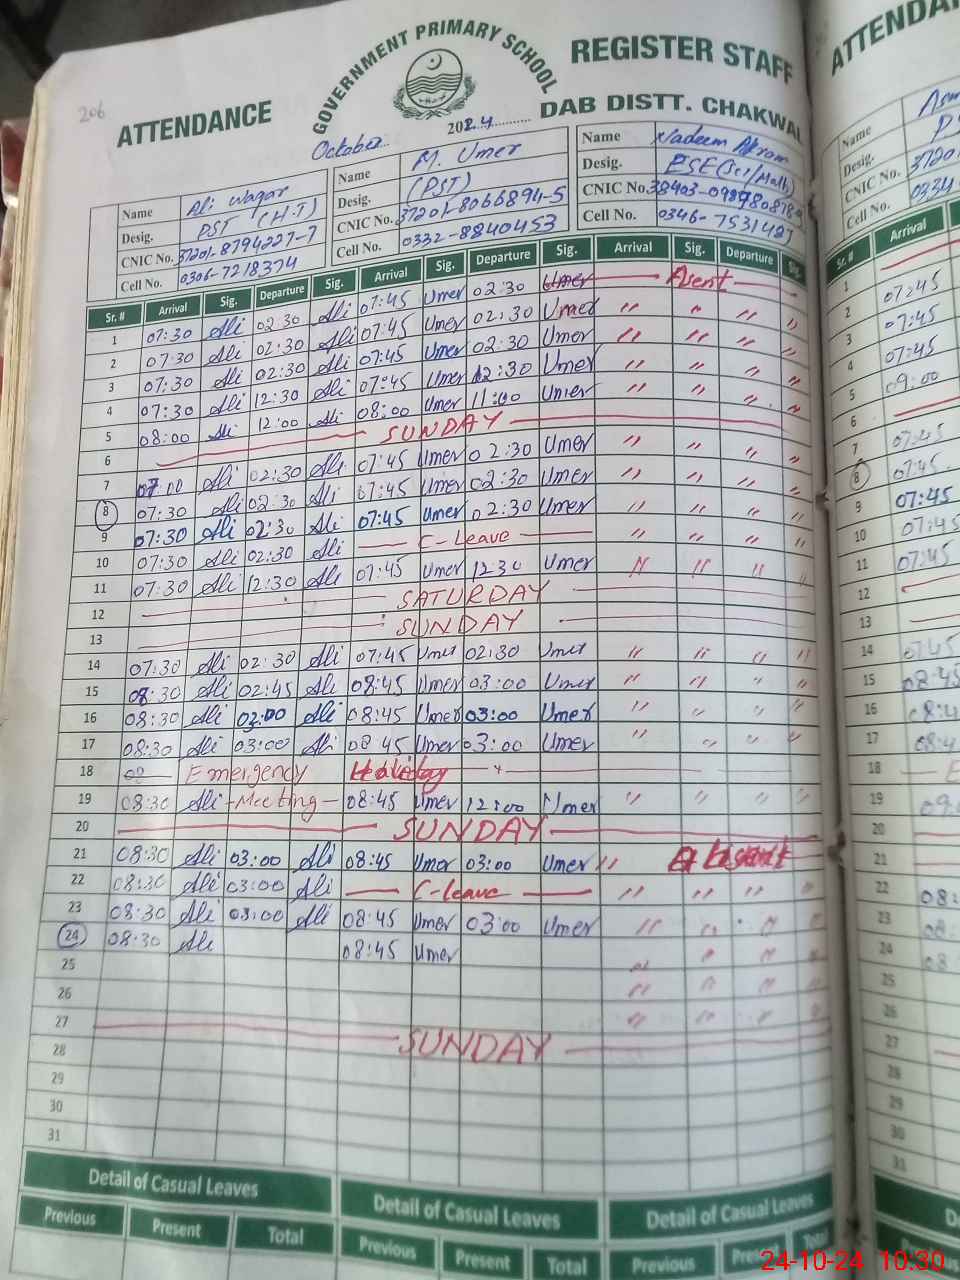 206
ATTENDANCE
GOVERNMENT PRIMARY SCHOOL
REGISTER STAFF
ATTENDA
DAB DISTT. CHAKWAL
October 2024
Name Ali Waqar
Desig. PST (H.T)
CNIC No. 37201-8794227-7
Cell No. 0306-7218374
Name M. Umer
Desig. (PST)
CNIC No. 37201-8066894-5
Cell No. 0332-8840453
Name Nadeem Akram
Desig. ESE(Sci/Math)
CNIC No.
Cell No. 0346-7531427
Name
Desig.
CNIC No. 37201
Cell No. 0334
Sr. # Arrival Sig. Departure Sig. Arrival Sig. Departure Sig. Arrival Sig. Departure Sig. Sr. # Arrival
1 07:30 Ali 02:30 Ali 07:45 Umer 02:30 Umer Asent 1
2 07:30 Ali 02:30 Ali 07:45 Umer 02:30 Umer " " " " 2 07:45
3 07:30 Ali 02:30 Ali 07:45 Umer 02:30 Umer " " " " 3 07:45
4 07:30 Ali 12:30 Ali 07:45 Umer 12:30 Umer " " " " 4 07:45
5 08:00 Ali 12:00 Ali 08:00 Umer 11:00 Umer " " " " 5 09:00
6 SUNDAY 6
7 07:00 Ali 02:30 Ali 07:45 Umer 02:30 Umer " " " " 7 07:45
8 07:30 Ali 02:30 Ali 07:45 Umer 02:30 Umer " " " " 8 07:45
9 07:30 Ali 02:30 Ali 07:45 Umer 02:30 Umer " " " " 9 07:45
10 07:30 Ali 02:30 Ali C-Leave " " " " 10 07:45
11 07:30 Ali 12:30 Ali 07:45 Umer 12:30 Umer " " " " 11 07:45
12 SATURDAY 12
13 SUNDAY 13
14 07:30 Ali 02:30 Ali 07:45 Umer 02:30 Umer " " " " 14 07:45
15 08:30 Ali 02:45 Ali 08:45 Umer 03:00 Umer " " " " 15 08:45
16 08:30 Ali 02:00 Ali 08:45 Umer 03:00 Umer " " " " 16 08:4
17 08:30 Ali 03:00 Ali 08:45 Umer 03:00 Umer " " " " 17 08:4
18 Emergency Holiday 18
19 08:30 Ali - Meeting - 08:45 Umer 12:00 Umer " " " " 19
20 SUNDAY 20
21 08:30 Ali 03:00 Ali 08:45 Umer 03:00 Umer " 21
22 08:30 Ali 03:00 Ali C-leave " " " " 22 08:
23 08:30 Ali 03:00 Ali 08:45 Umer 03:00 Umer " " " " 23 08:
24 08:30 Ali 08:45 Umer " " " 24 08
25 " " " " 25
26 " " " " 26
27 SUNDAY 27
28 28
29 29
30 30
31 31
Detail of Casual Leaves Detail of Casual Leaves Detail of Casual Leaves
Previous Present Total Previous Present Total Previous Present Total
24-10-24 10:30